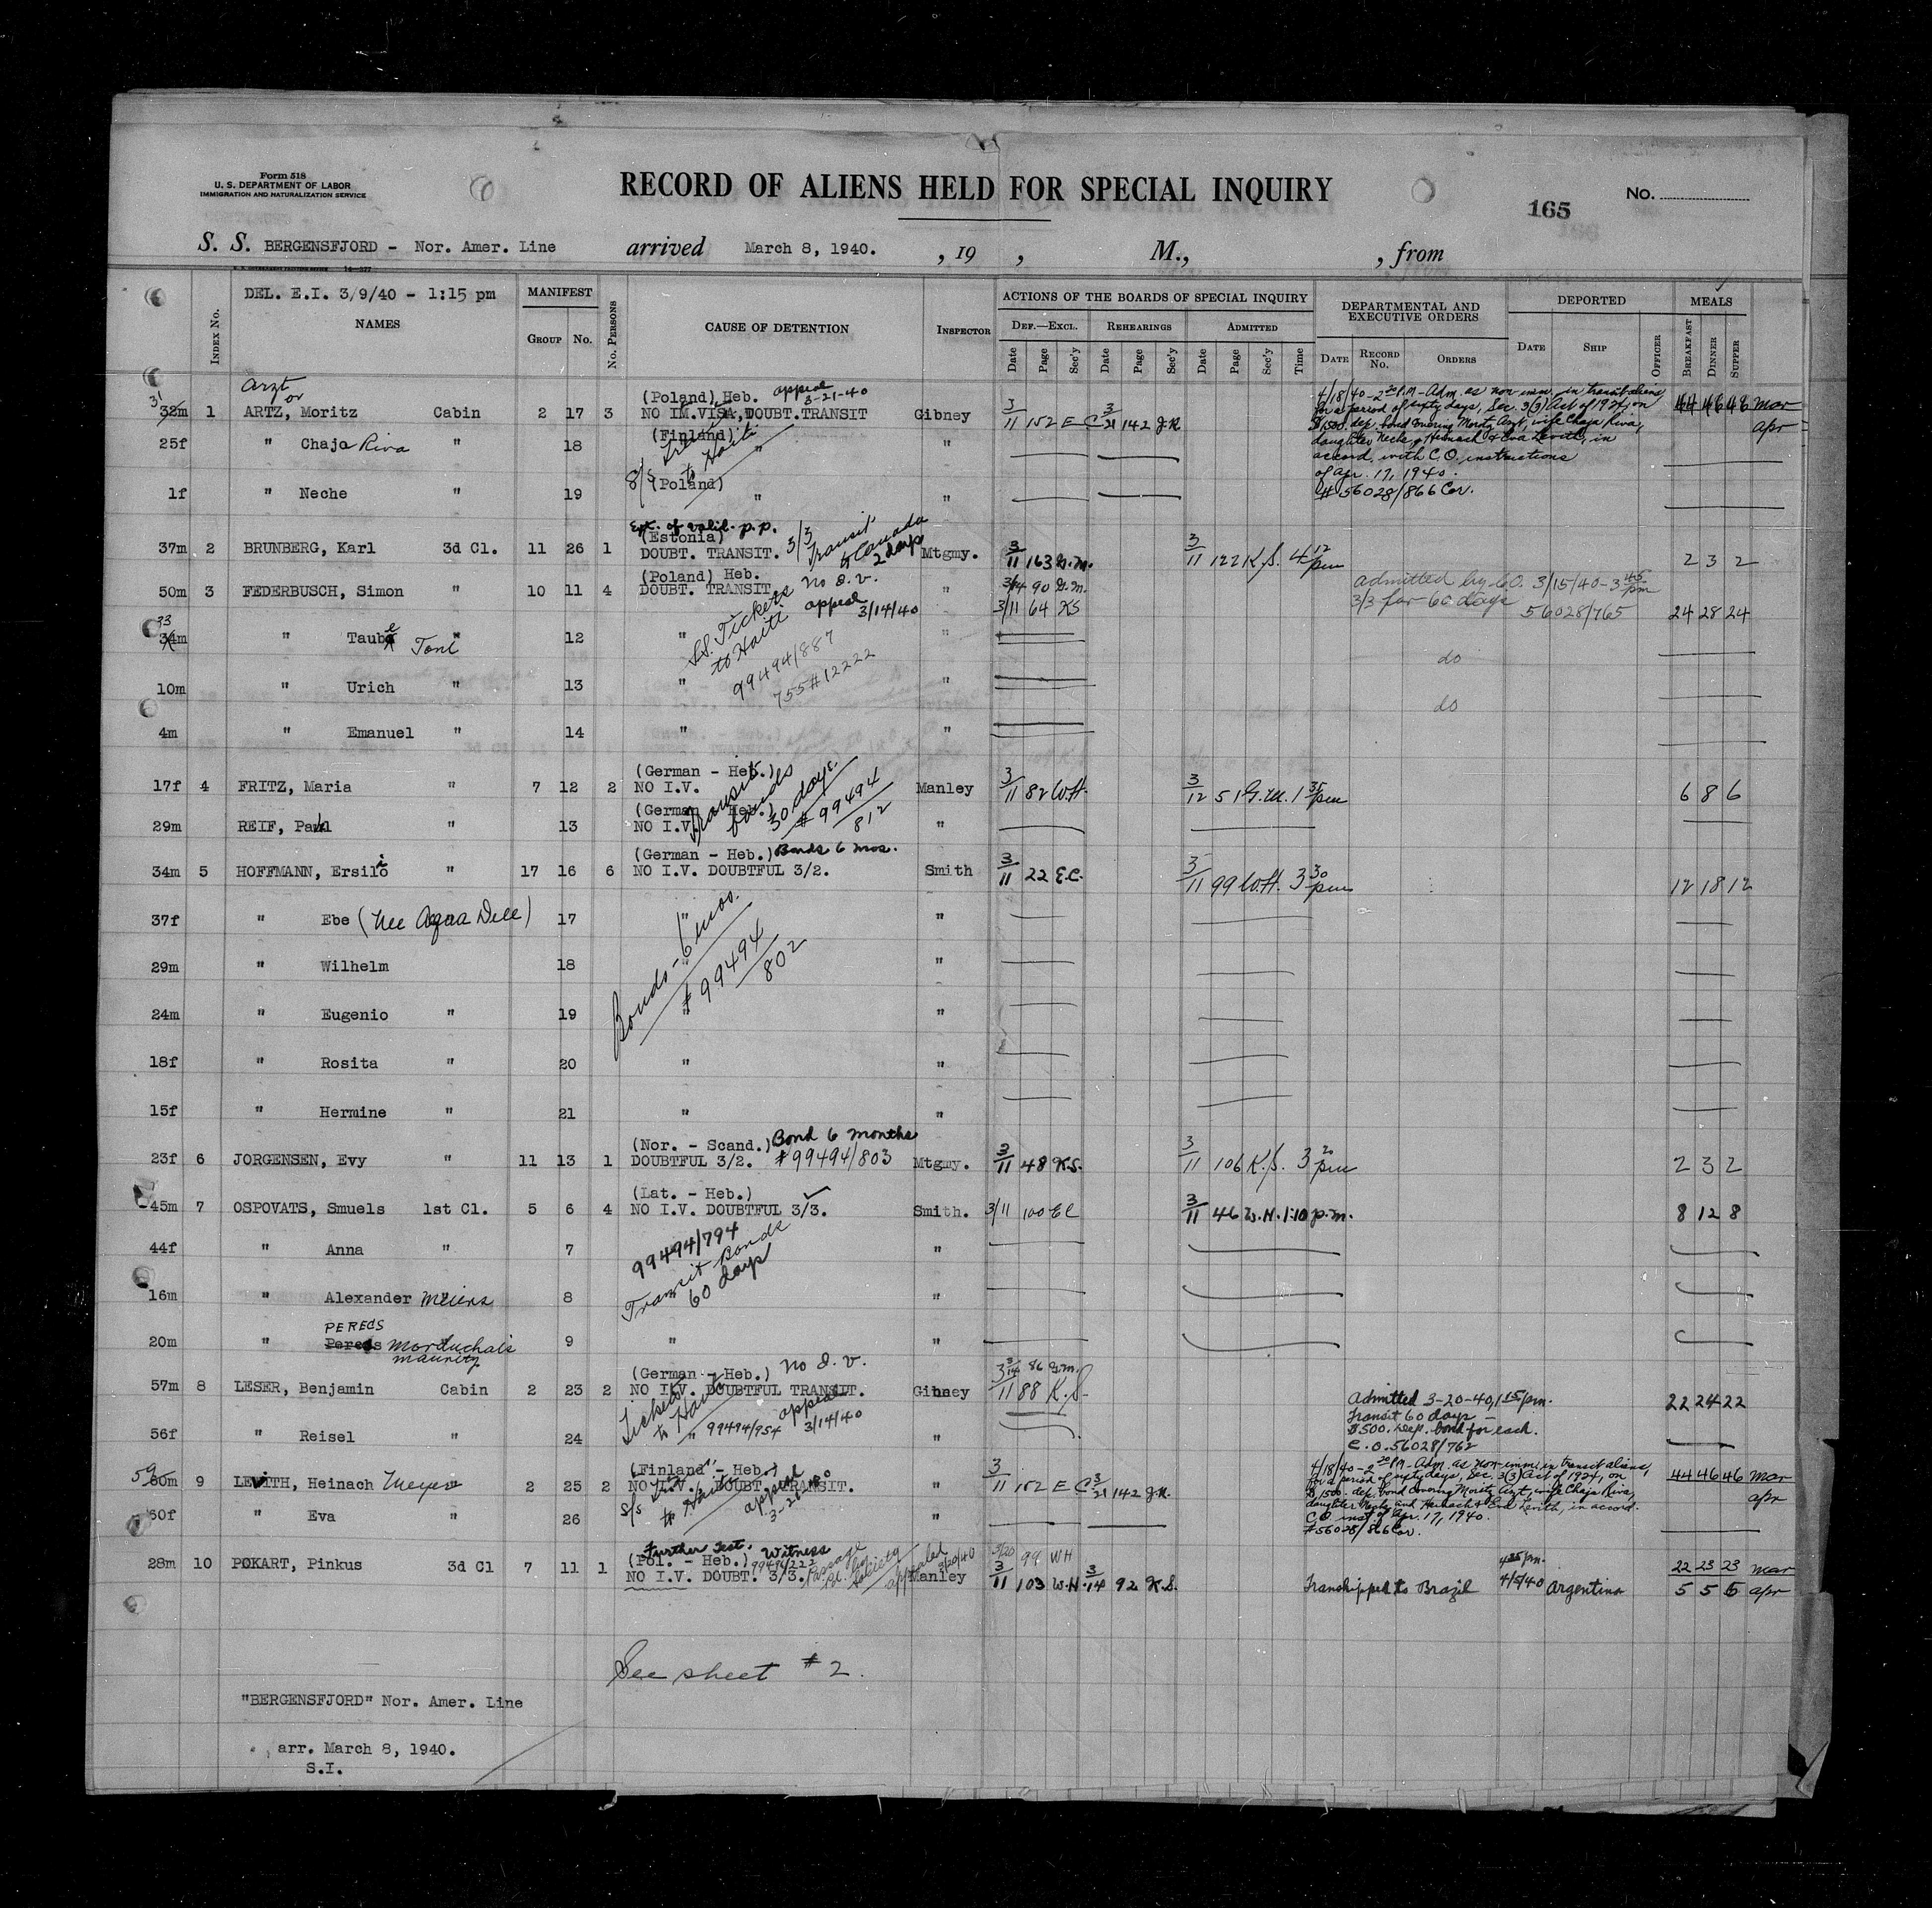 Form 518
U. S. DEPARTMENT OF LABOR
IMMIGRATION AND NATURALIZATION SERVICE
RECORD OF ALIENS HELD FOR SPECIAL INQUIRY
165
No.
S. S. BERGENSFJORD - Nor. Amer. Line arrived March 8, 1940. , 19 , M., , from
DEL. E.I. 3/9/40 - 1:15 pm
Index No. NAMES MANIFEST Group No. No. Persons CAUSE OF DETENTION Inspector
ACTIONS OF THE BOARDS OF SPECIAL INQUIRY
Def.—Excl. Rehearings Admitted
Date Page Sec'y Date Page Sec'y Date Page Sec'y Time
DEPARTMENTAL AND EXECUTIVE ORDERS
Date Record No. Orders
DEPORTED
Date Ship Officer
MEALS
Breakfast Dinner Supper
Arzt or
(Poland) Heb. appeal 3-21-40
31 32m 1 ARTZ, Moritz Cabin 2 17 3 NO I.VISA, DOUBT.TRANSIT Gibney 3/11 152 E C 3/21 142 J.R. 44 46 46 Mar
Apr
4/18/40 - 2 20 PM - Adm. as non-imm. in transit aliens
for a period of sixty days, Sec. 3(3) Act of 1924, on
$1500. dep. bond covering Moritz Arzt, wife Chaja Riva,
daughter Neche, & Heinach & Eva Levith, in
accord. with C.O. instructions
of Apr. 17, 1940.
# 56028/866 Cer.
(Finland)
25f " Chaja Riva " 18 " "
to Haiti
S/S (Poland)
1f " Neche " 19 " "
Ext. of valid. p.p.
(Estonia)
37m 2 BRUNBERG, Karl 3d Cl. 11 26 1 DOUBT. TRANSIT. 3/3 Transit to Canada 2 days Mtgmy. 3/11 163 G.M. 3/11 122 K.S. 4 12 pm 2 3 2
(Poland) Heb. No I.V.
50m 3 FEDERBUSCH, Simon " 10 11 4 DOUBT. TRANSIT " 3/14 90 G.M.
3/11 64 KS
admitted by C.O. 3/15/40 - 3 45 pm
3/3 for 60 days 56028/765 24 28 24
S.S. Tickets to Haiti appeal 3/14/40
33 34m " Taube Toni " 12 " " do
99494/887
755#12222
10m " Urich " 13 " " do
4m " Emanuel " 14 " "
(German - Heb.)
17f 4 FRITZ, Maria " 7 12 2 NO I.V. Manley 3/11 82 W.H. 3/12 51 G.M. 1 35 pm 6 8 6
Transit bonds 30 days. # 99494/812
(German - Heb.)
29m REIF, Paul " 13 NO I.V. "
(German - Heb.) Bonds 6 mos.
34m 5 HOFFMANN, Ersilio " 17 16 6 NO I.V. DOUBTFUL 3/2. Smith 3/11 22 E.C. 3/11 99 W.H. 3 30 pm 12 18 12
37f " Ebe (Nee Aqua Dell) 17 " "
Bonds - 6 mos. # 99494/802
29m " Wilhelm 18 " "
24m " Eugenio " 19 " "
18f " Rosita " 20 " "
15f " Hermine " 21 " "
(Nor. - Scand.) Bond 6 months
23f 6 JORGENSEN, Evy " 11 13 1 DOUBTFUL 3/2. # 99494/803 Mtgmy. 3/11 48 K.S. 3/11 106 K.S. 3 20 pm 2 3 2
(Lat. - Heb.)
45m 7 OSPOVATS, Smuels 1st Cl. 5 6 4 NO I.V. DOUBTFUL 3/3. Smith. 3/11 100 EC 3/11 46 W.H. 1:10 p.m. 8 12 8
44f " Anna " 7 "
99494/794
Transit Bonds
60 days
16m " Alexander Meiers 8 "
PEREDS
20m " Pereds Morduchais 9 " "
Mauritz
(German - Heb.) No I.V.
57m 8 LESER, Benjamin Cabin 2 23 2 NO I.V. DOUBTFUL TRANSIT. Gibney 3/14 86 G.M.
3/11 88 K.S.
Admitted 3-20-40, 1 15 pm.
Transit 60 days -
$500. dep. bond for each.
C.O. 56028/762
22 24 22
Tickets to Haiti appeal 3/14/40
56f " Reisel " 24 " 99494/954 "
(Finland - Heb.)
59 60m 9 LEVITH, Heinach Meyer 2 25 2 NO I.V. DOUBT. TRANSIT. " 3/11 152 E C 3/21 142 J.R. 44 46 46 Mar
Apr
S/S to Haiti appeal
4/18/40 - 2 20 PM - Adm. as non-imm. in transit aliens,
for a period of sixty days, Sec. 3(3) Act of 1924, on
$1500. dep. bond covering Moritz Arzt, wife Chaja Riva,
daughter Neche and Heinach & Eva Levith, in accord.
C.O. inst. of Apr. 17, 1940.
# 56028/866 Cer.
60f " Eva " 26 "
Further Test. Witness
(Pol. - Heb.) 99496/222
28m 10 POKART, Pinkus 3d Cl 7 11 1 NO I.V. DOUBT. 3/3. Passage Pd. by Society appealed 3/20/40 Manley
3/20 99 WH
3/11 103 W.H. 3/14 92 K.S. Transhipped to Brazil 4/5/40 Argentina
22 23 23 Mar
5 5 5 Apr
See sheet #2.
"BERGENSFJORD" Nor. Amer. Line
arr. March 8, 1940.
S.I.